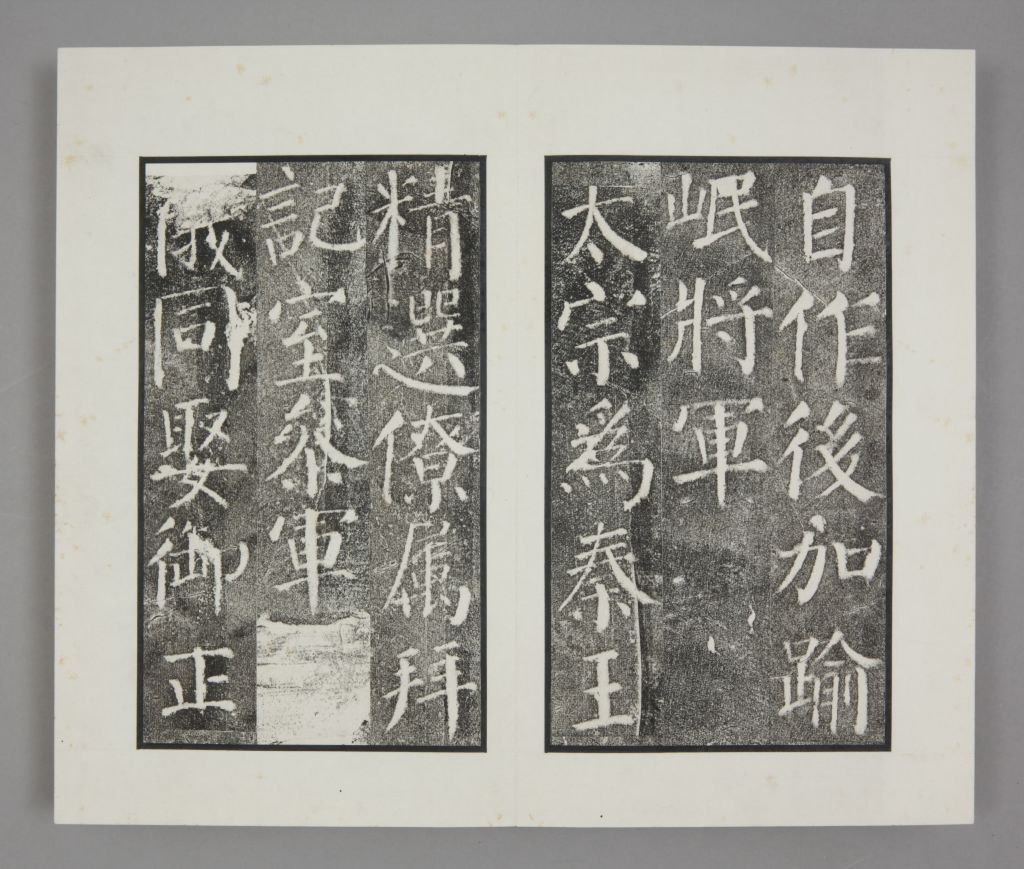 自作後加踰
岷將軍
太宗爲秦王
精選僚属拜
記室叅軍
儀同娶御正